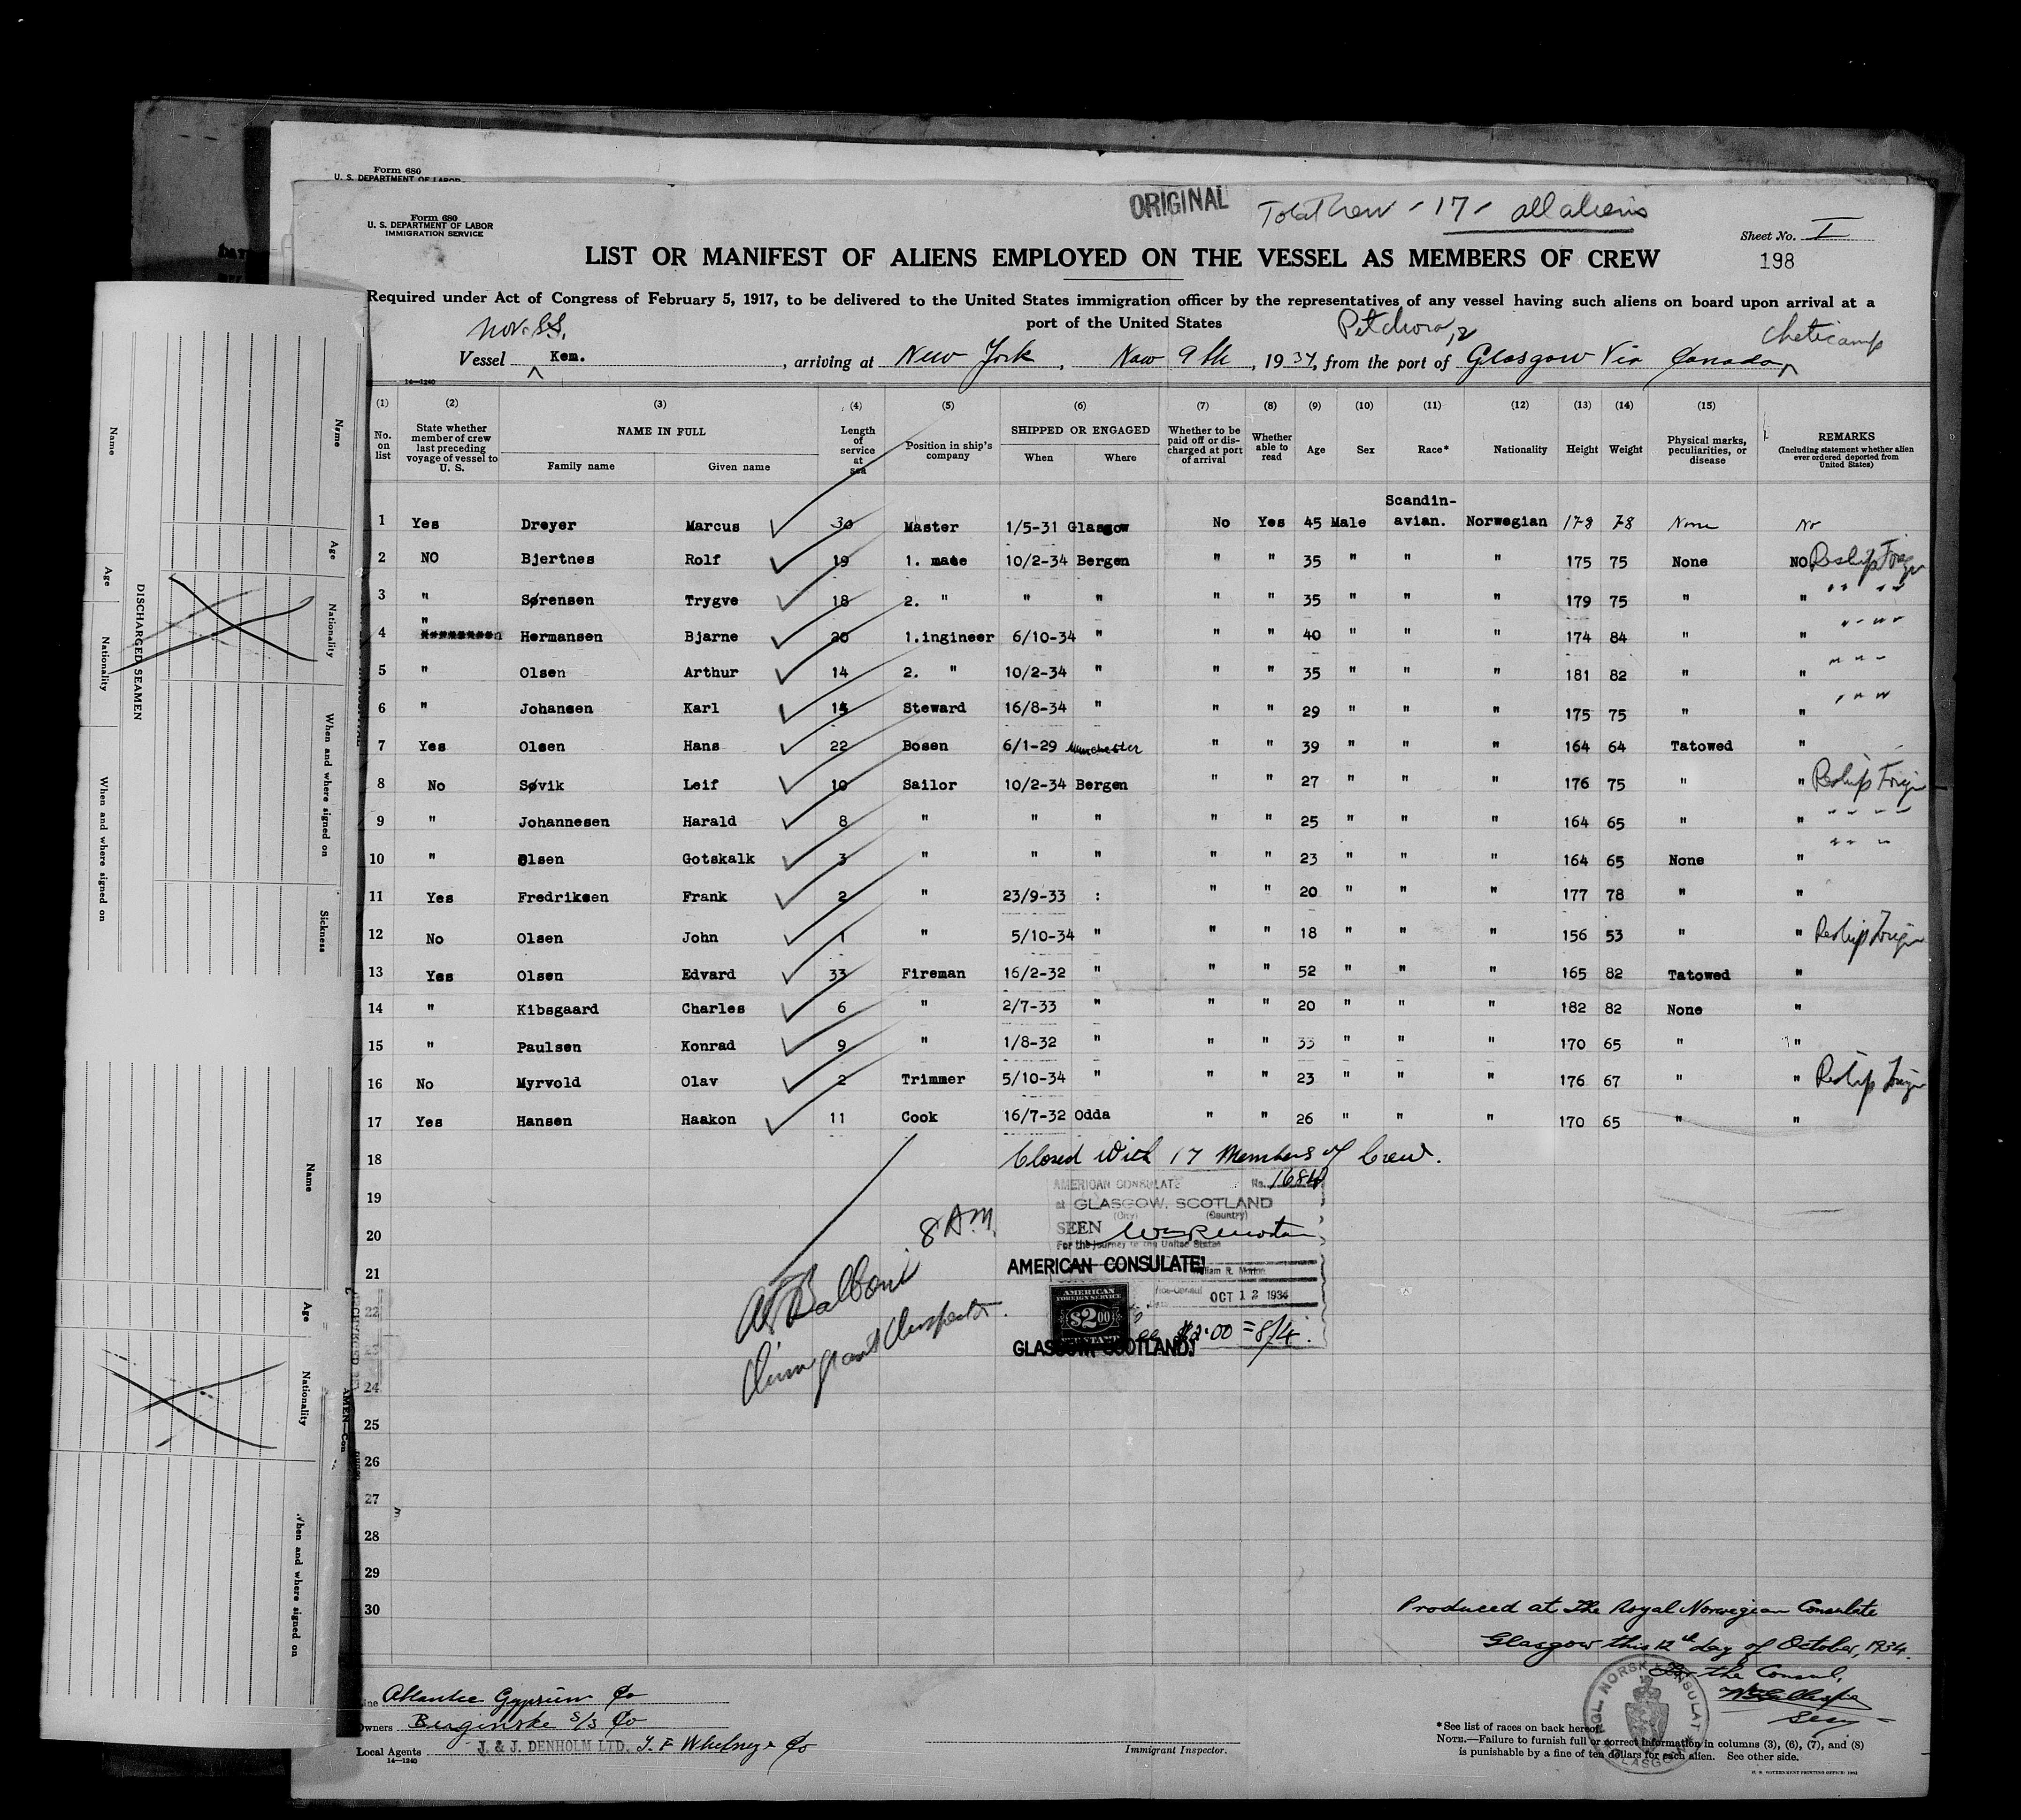 Form 680
U. S. DEPARTMENT OF LABOR
Form 680
U. S. DEPARTMENT OF LABOR
IMMIGRATION SERVICE
ORIGINAL
Total Crew - 17 - all aliens
Sheet No. I
198
LIST OR MANIFEST OF ALIENS EMPLOYED ON THE VESSEL AS MEMBERS OF CREW
Required under Act of Congress of February 5, 1917, to be delivered to the United States immigration officer by the representatives of any vessel having such aliens on board upon arrival at a
port of the United States
Nor. S.S.
Cheticamp
Vessel Kem. , arriving at New York , Nov 9th , 1934, from the port of Glasgow Via Canada
14—1240
(1) (2) (3) (4) (5) (6) (7) (8) (9) (10) (11) (12) (13) (14) (15)
No. on list
State whether member of crew last preceding voyage of vessel to U. S.
NAME IN FULL
Family name Given name
Length of service at sea
Position in ship's company
SHIPPED OR ENGAGED
When Where
Whether to be paid off or discharged at port of arrival
Whether able to read
Age Sex Race* Nationality Height Weight
Physical marks, peculiarities, or disease
REMARKS
(Including statement whether alien ever ordered deported from United States)
1 Yes Dreyer Marcus 30 Master 1/5-31 Glasgow No Yes 45 Male Scandin-avian. Norwegian 178 78 None No
2 NO Bjertnes Rolf 19 1. mate 10/2-34 Bergen " " 35 " " " 175 75 None NO Reship Foreign
3 " Sørensen Trygve 18 2. " " " " " 35 " " " 179 75 " " " "
4 " Hermansen Bjarne 20 1.ingineer 6/10-34 " " " 40 " " " 174 84 " " " "
5 " Olsen Arthur 14 2. " 10/2-34 " " " 35 " " " 181 82 " " " "
6 " Johansen Karl 14 Steward 16/8-34 " " " 29 " " " 175 75 " " " "
7 Yes Olsen Hans 22 Bosen 6/1-29 Manchester " " 39 " " " 164 64 Tatowed "
8 No Søvik Leif 10 Sailor 10/2-34 Bergen " " 27 " " " 176 75 " " Reship Foreign
9 " Johannesen Harald 8 " " " " " 25 " " " 164 65 " " " "
10 " Olsen Gotskalk 3 " " " " " 23 " " " 164 65 None " " "
11 Yes Fredriksen Frank 2 " 23/9-33 : " " 20 " " " 177 78 " "
12 No Olsen John 1 " 5/10-34 " " " 18 " " " 156 53 " " Reship Foreign
13 Yes Olsen Edvard 33 Fireman 16/2-32 " " " 52 " " " 165 82 Tatowed "
14 " Kibsgaard Charles 6 " 2/7-33 " " " 20 " " " 182 82 None "
15 " Paulsen Konrad 9 " 1/8-32 " " " 33 " " " 170 65 " "
16 No Myrvold Olav 2 Trimmer 5/10-34 " " " 23 " " " 176 67 " " Reship Foreign
17 Yes Hansen Haakon 11 Cook 16/7-32 Odda " " 26 " " " 170 65 " "
18 Closed with 17 Members of Crew.
19
20
21
22
23
24
25
26
27
28
29
30
AMERICAN CONSULATE No. 1684
at GLASGOW, SCOTLAND
(City) (Country)
SEEN
For the journey to the United States
AMERICAN CONSULATE
William R. Morton
Vice-Consul
OCT 12 1934
AMERICAN
FOREIGN SERVICE
$2.00
FEE STAMP
$2.00 = 8/4.
GLASGOW, SCOTLAND.
8 AM.
Balboni
Immigrant Inspector.
Produced at The Royal Norwegian Consulate
Glasgow this 12th day of October, 1934.
For the Consul,
Secy
Line Atlantic Gypsum Co
Owners Berginske S/S Co
Local Agents J. & J. DENHOLM LTD. J. F Whitney & Co
14—1240
Immigrant Inspector.
*See list of races on back hereof.
NOTE.—Failure to furnish full or correct information in columns (3), (6), (7), and (8)
is punishable by a fine of ten dollars for each alien. See other side.
U. S. GOVERNMENT PRINTING OFFICE
DISCHARGED SEAMEN
Name Age Nationality When and where signed on
Name Age Nationality When and where signed on Sickness
Name Age Nationality When and where signed on